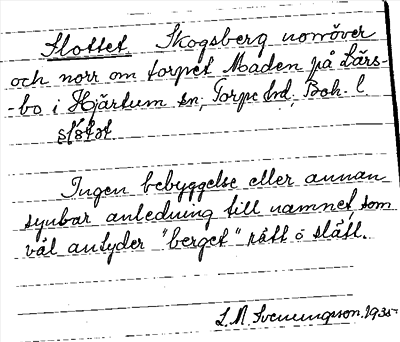 Slottet. Skogsberg norröver
och norr om torpet Maden på Lars-
-bo i Hjärtum sn, Torpe hd, Boh. l.
slo̱tət.
Ingen bebyggelse eller annan
synbar anledning till namnet, som
väl antyder "berget" rätt o slätt.
L. M. Svenungsson. 1935